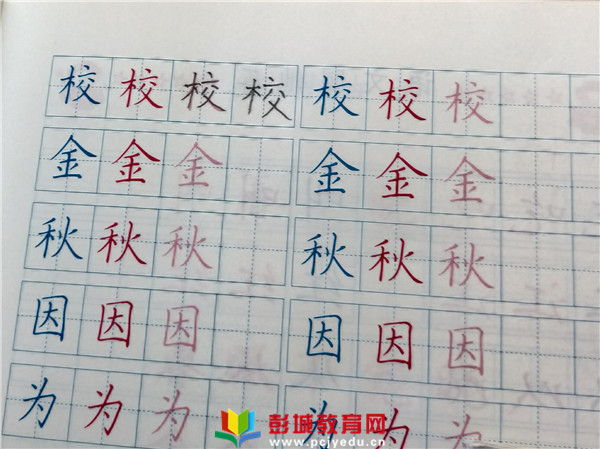 校 校 校 校 校 校 校
金 金 金 金 金 金
秋 秋 秋 秋 秋 秋
因 因 因 因 因 因
为 为 为 为 为 为
彭城教育网
www.pcjyedu.cn